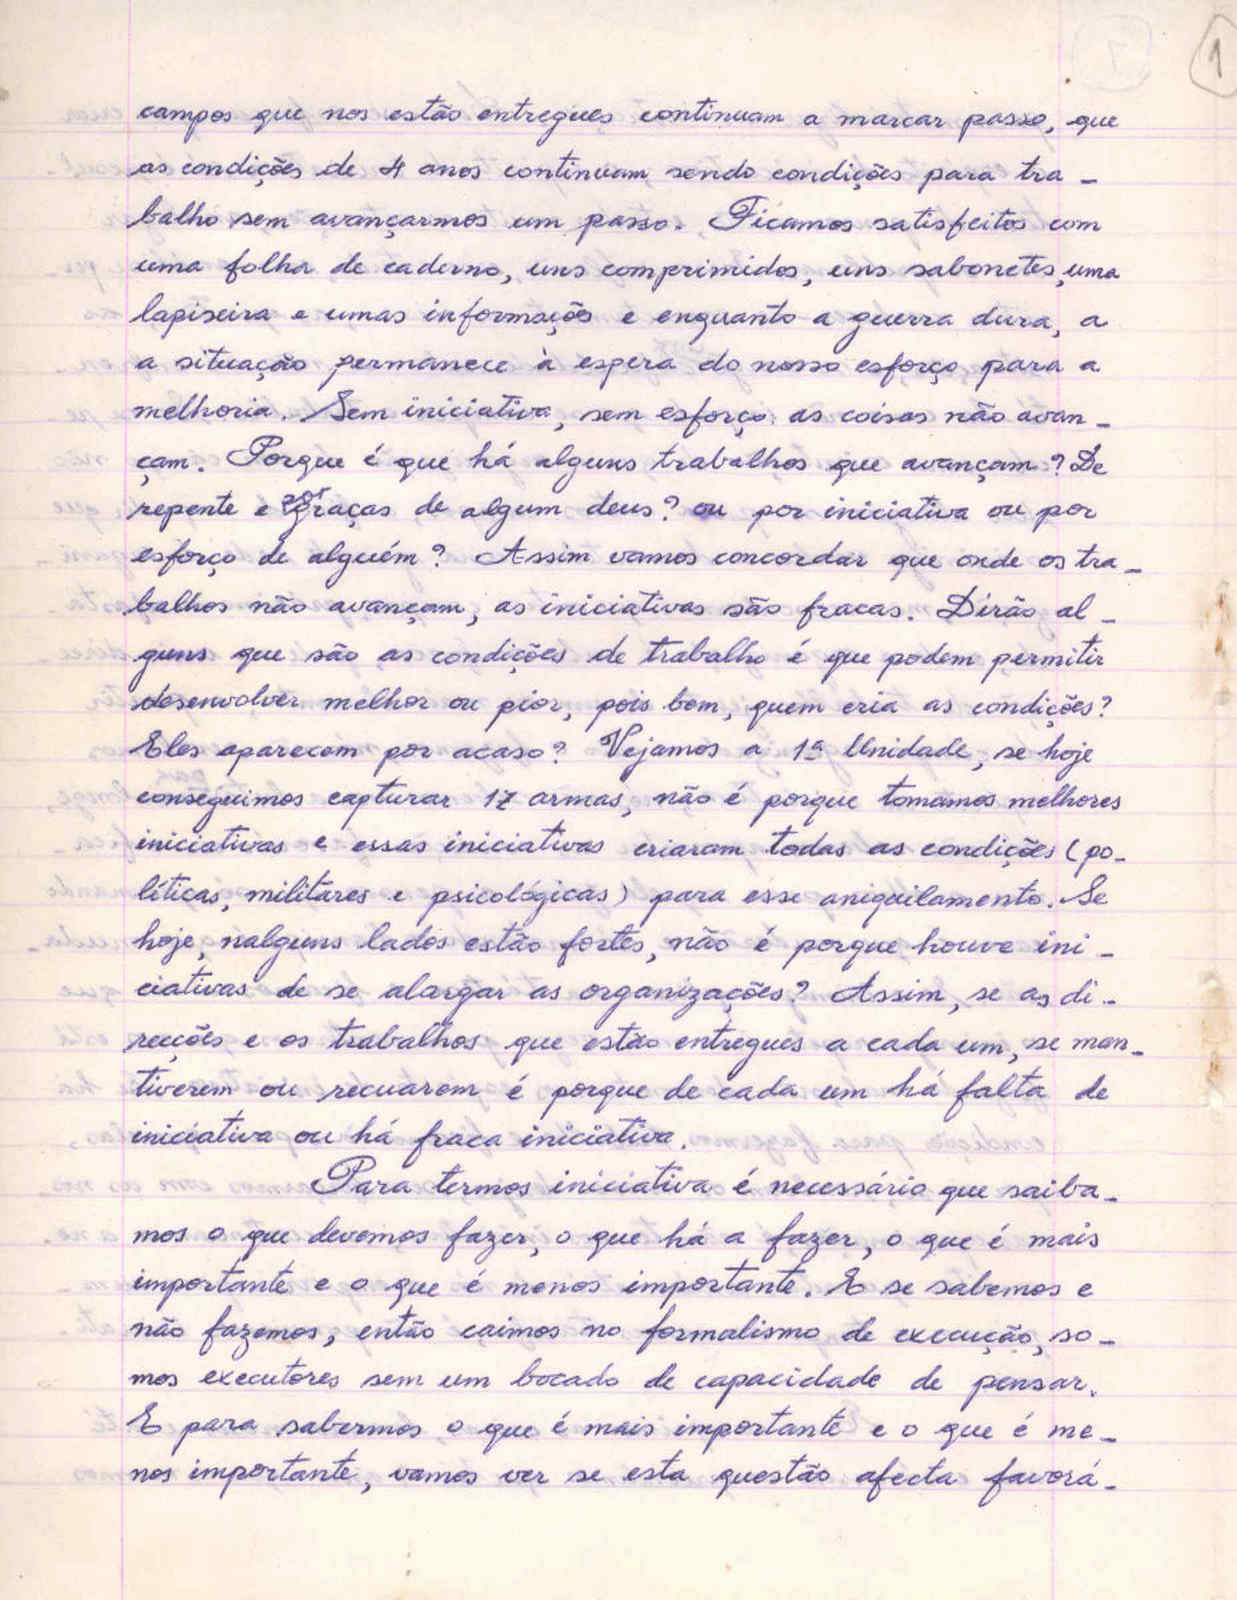 1
campos que nos estão entregues continuam a marcar passo, que
as condições de 4 anos continuam sendo condições para tra-
balho sem avançarmos um passo. Ficamos satisfeitos com
uma folha de caderno, uns comprimidos, uns sabonetes, uma
lapiseira e umas informações e enquanto a guerra dura, a
a situação permanece à espera do nosso esforço para a
melhoria. Sem iniciativa, sem esforço as coisas não avan-
çam. Porque é que há alguns trabalhos que avançam? De
repente e por graças de algum deus? ou por iniciativa ou por
esforço de alguém? Assim vamos concordar que onde os tra-
balhos não avançam, as iniciativas são fracas. Dirão al-
guns que são as condições de trabalho é que podem permitir
desenvolver melhor ou pior, pois bem, quem cria as condições?
Eles aparecem por acaso? Vejamos a 1ª Unidade, se hoje
conseguimos capturar 17 armas, não é porque tomamos melhores
iniciativas e essas iniciativas criaram todas as condições (po-
líticas, militares e psicológicas) para esse aniquilamento. Se
hoje, nalguns lados estão fortes, não é porque houve ini-
ciativas de se alargar as organizações? Assim, se as di-
recções e os trabalhos que estão entregues a cada um, se man-
tiverem ou recuarem é porque de cada um há falta de
iniciativa ou há fraca iniciativa.
Para termos iniciativa é necessário que saiba-
mos o que devemos fazer, o que há a fazer, o que é mais
importante e o que é menos importante. E se sabemos e
não fazemos, então caimos no formalismo de execução, so-
mos executores sem um bocado de capacidade de pensar.
E para sabermos o que é mais importante e o que é me-
nos importante, vamos ver se esta questão afecta favorá-